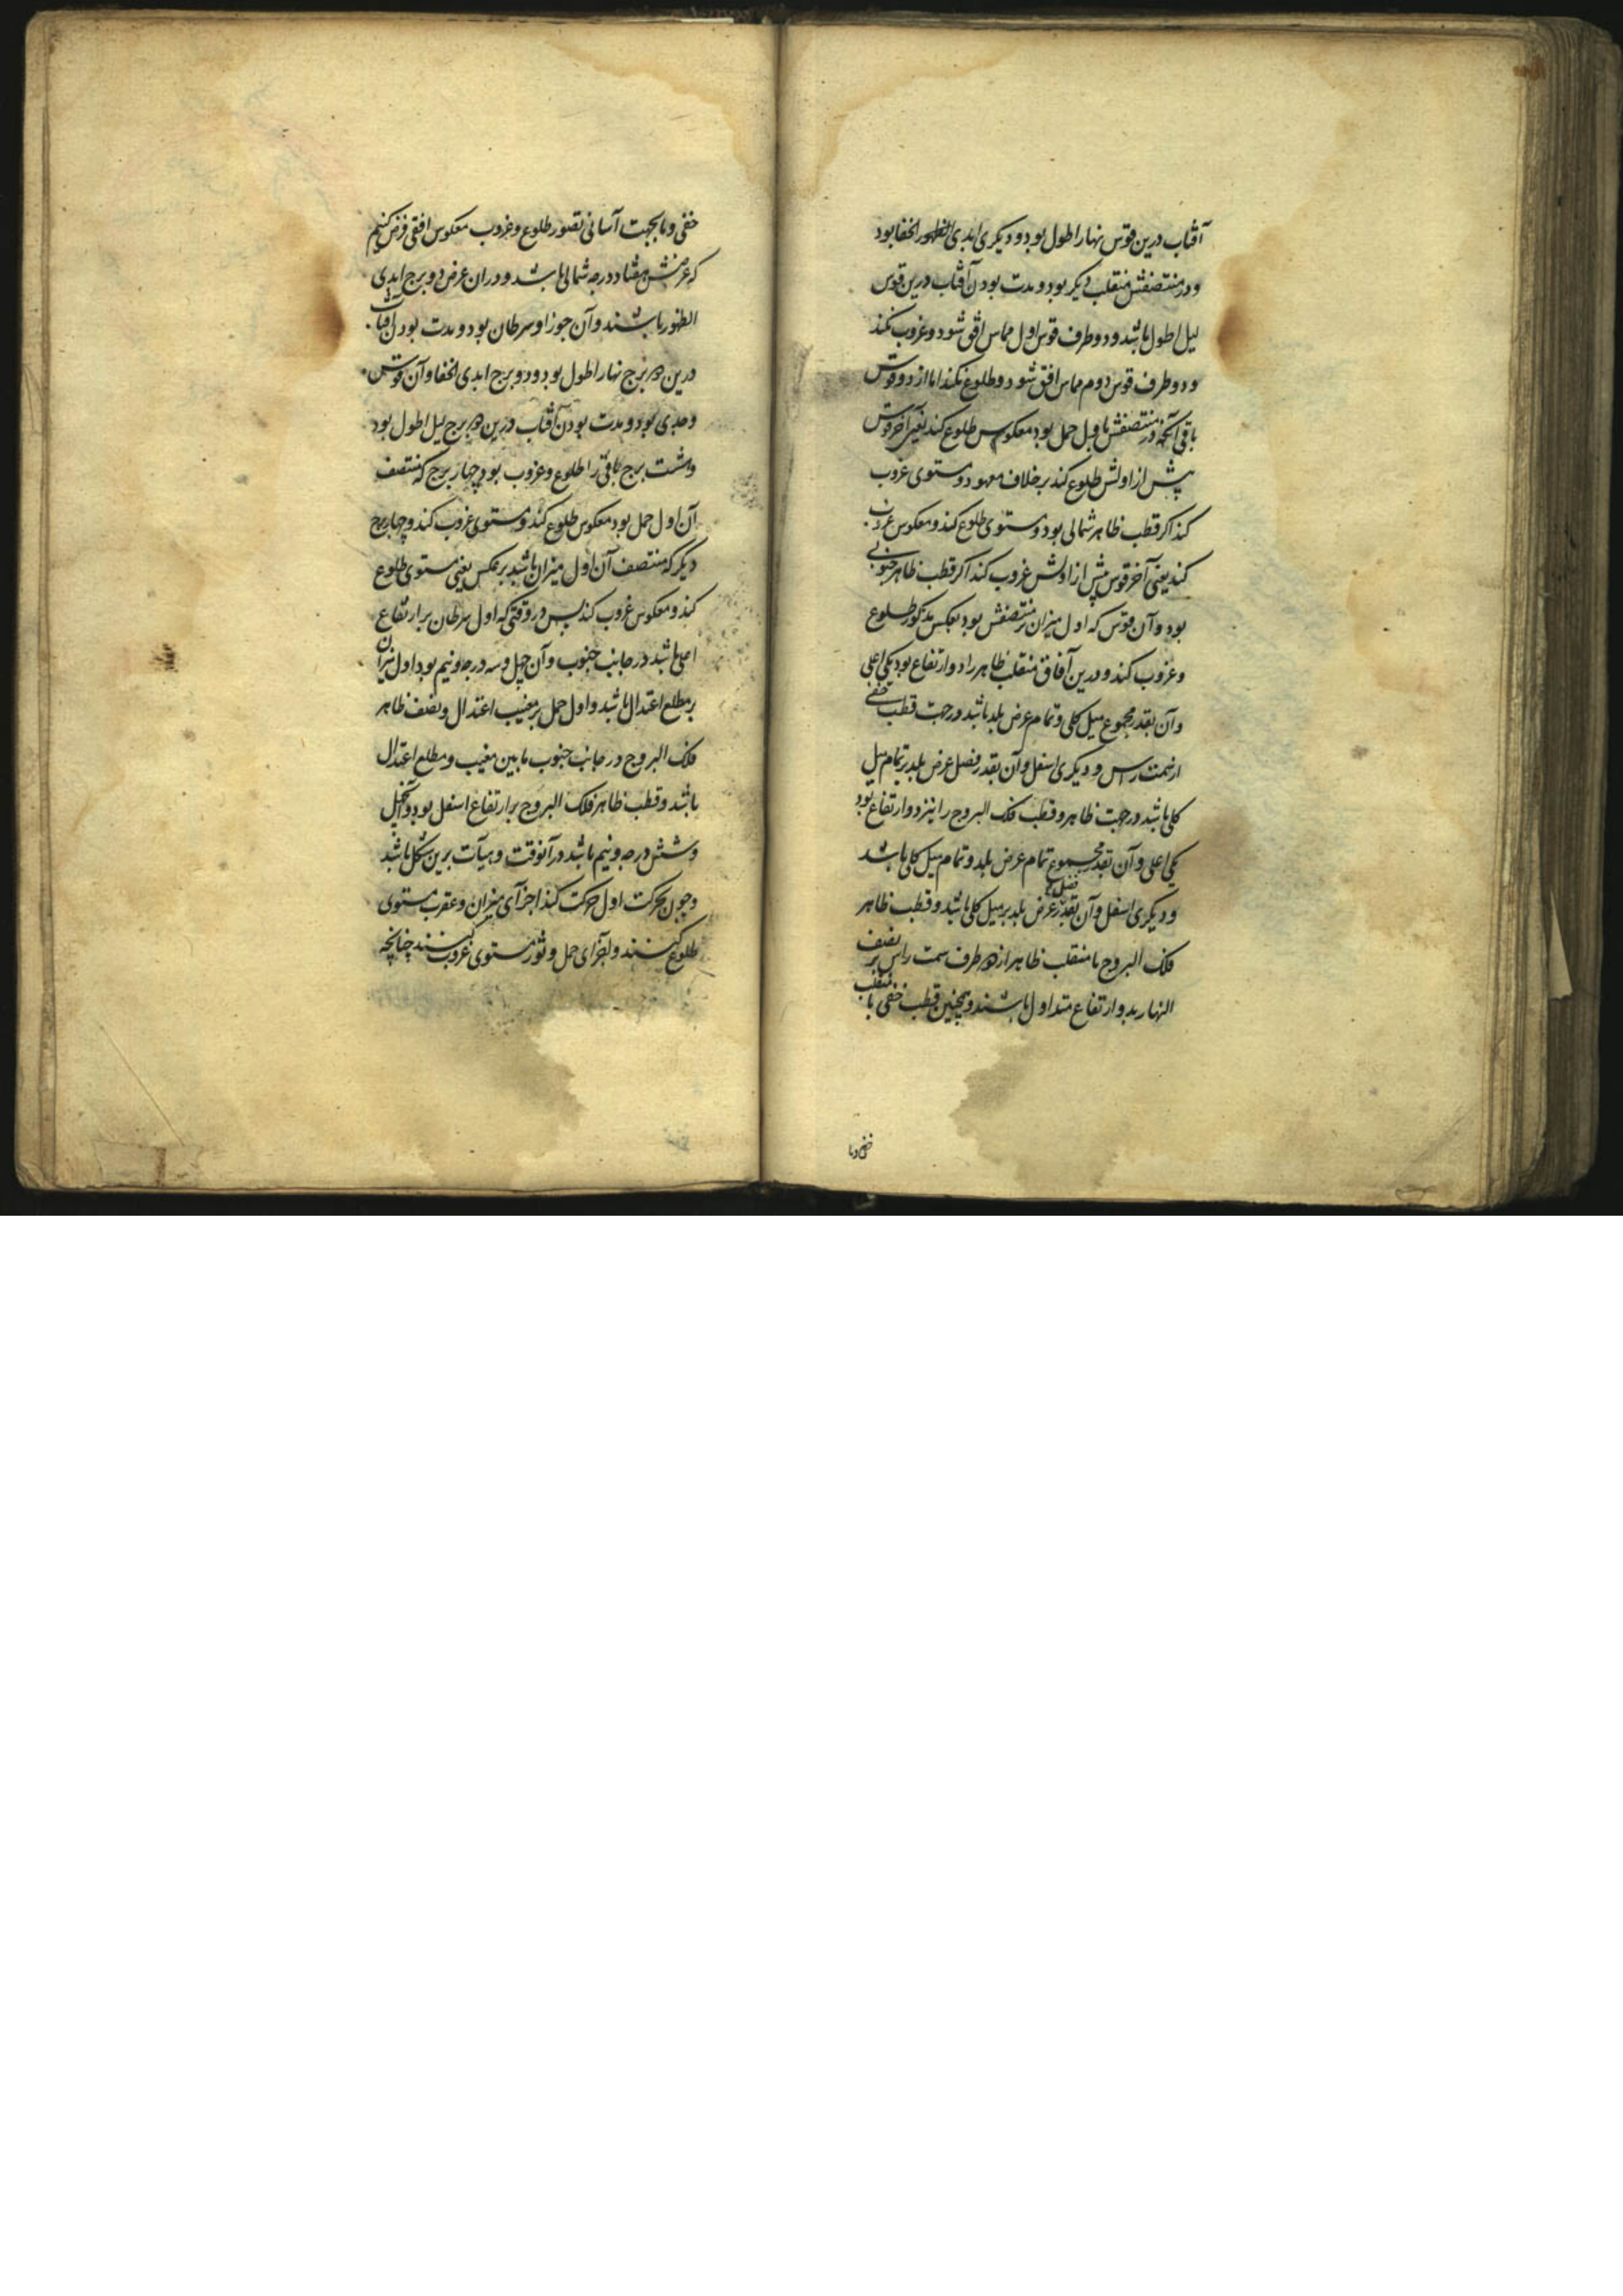 آفتاب درین قوس نهار اطول بود و دیکری ابدی الخفا بود
و در منتصفش منقلب دیکر بود و مدت بودن آفتاب درین قوس
لیل اطول باشد و دو طرف قوس اول مماس افق شود و غروب نکند
و دو طرف قوس دوم مماس افق شود و طلوع نکند اما از دو قوس
باقی آنکه در منتصفش اول حمل بود معکوس طلوع کند یعنی آخر قوس
پیش از اولش طلوع کند بر خلاف معهود و مستوی غروب
کند اکر قطب ظاهر شمالی بود و مستوی طلوع کند و معکوس غروب
کند یعنی آخر قوس پیش از اولش غروب کند اکر قطب ظاهر جنوبی
بود و آن قوس که اول میزان بر منتصفش بود بعکس مذکور طلوع
و غروب کند و درین آفاق منقلب ظاهر را دو ارتفاع بود یکی اعلی
و آن بقدر مجموع میل کلی و تمام عرض بلد باشد در جهت قطب خفی
از سمت راس و دیکری اسفل و آن بقدر فضل عرض بلد بر تمام میل
کلی باشد در جهت ظاهر و قطب فلک البروج را نیز دو ارتفاع بود
یکی اعلی و آن بقدر مجموع تمام عرض بلد و تمام میل کلی باشد
و دیکری اسفل و آن بقدر فضل عرض بلد بر میل کلی باشد و قطب ظاهر
فلک البروج با منقلب ظاهر از هر طرف سمت راس بر نصف
النهار بدو ارتفاع متداول باشند و همچنین قطب خفی با منقلب
خفی و ما
خفی و ما بجهت آسانی تصور طلوع و غروب معکوس افقی فرض کنیم
که عرضش هفتاد درجه شمالی باشد و در ان عرض دو برج ابدی
الظهور باشند و آن جوزا و سرطان بود و مدت بودن آفتاب
درین دو برج نهار اطول بود و دو برج ابدی الخفا و آن قوس
و جدی بود و مدت بودن آفتاب درین دو برج لیل اطول بود
و هشت برج باقی را طلوع و غروب بود چهار برج که منتصف
آن اول حمل بود معکوس طلوع کند و مستوی غروب کند و چهار برج
دیکر که منتصف آن اول میزان باشد بر عکس یعنی مستوی طلوع
کند و معکوس غروب کند پس در وقتی که اول سرطان بر ارتفاع
اعلی باشد در جانب جنوب و آن چهل و سه درجه و نیم بود اول میزان
بر مطلع اعتدال باشد و اول حمل بر مغیب اعتدال و نصف ظاهر
فلک البروج در جانب جنوب ما بین مغیب و مطلع اعتدال
باشد و قطب ظاهر فلک البروج بر ارتفاع اسفل بود و آن چهل
و شش درجه و نیم باشد در آنوقت و هیآت برین شکل باشد
و چون بحرکت اول حرکت کند اجزآی میزان و عقرب مستوی
طلوع کنند و اجزای حمل و ثور مستوی غروب کنند چنانچه